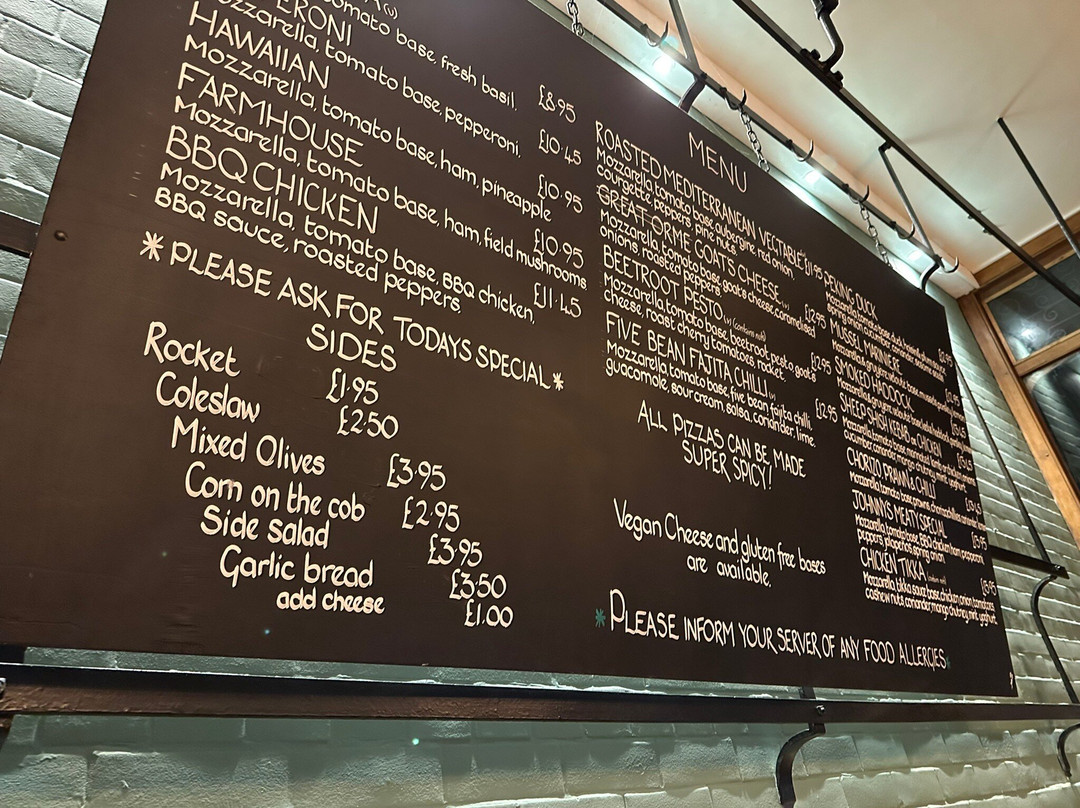 tomato base, fresh basil. £8.95
ERONI
Mozzarella, tomato base, pepperoni. £10.45
HAWAIIAN
Mozzarella, tomato base, ham, pineapple £10.95
FARMHOUSE
Mozzarella, tomato base, ham, field mushrooms £10.95
BBQ CHICKEN
Mozzarella, tomato base, BBQ chicken, £11.45
BBQ sauce, roasted peppers.
* PLEASE ASK FOR TODAYS SPECIAL *
SIDES
Rocket £1.95
Coleslaw £2.50
Mixed Olives £3.95
Corn on the cob £2.95
Side salad £3.95
Garlic bread £3.50
add cheese £1.00
MENU
ROASTED MEDITERRANEAN VEGTABLE £11.95
Mozzarella, tomato base, aubergine, red onion
courgette, peppers, pine nuts.
GREAT ORME GOATS CHEESE (v) £12.95
Mozzarella, tomato base, goats cheese, caramelised
onions, roasted peppers
BEETROOT PESTO (v) £12.95
Mozzarella, tomato base, beetroot pesto, goats
cheese, roast cherry tomatoes, rocket.
FIVE BEAN FAJITA CHILLI (v) £12.95
Mozzarella, tomato base, five bean fajita chilli,
guacamole, sour cream, salsa, coriander, lime.
ALL PIZZAS CAN BE MADE
SUPER SPICY!
Vegan Cheese and gluten free bases
are available.
* PLEASE INFORM YOUR SERVER OF ANY FOOD ALLERGIES
PEKING DUCK
MUSSEL MARINIERE
SMOKED HADDOCK
SHEEP SHISH KEBAB or CHICKEN
CHORIZO, PRAWN & CHILLI
JOHNNYS MEATY SPECIAL
Mozzarella, tomato base, BBQ chicken, ham, pepperoni
peppers, jalapeños, spring onion
CHICKEN TIKKA
Mozzarella, tikka sauce base, chicken, onion, tomatoes
cashew nuts, coriander, mango chutney, mint yoghurt